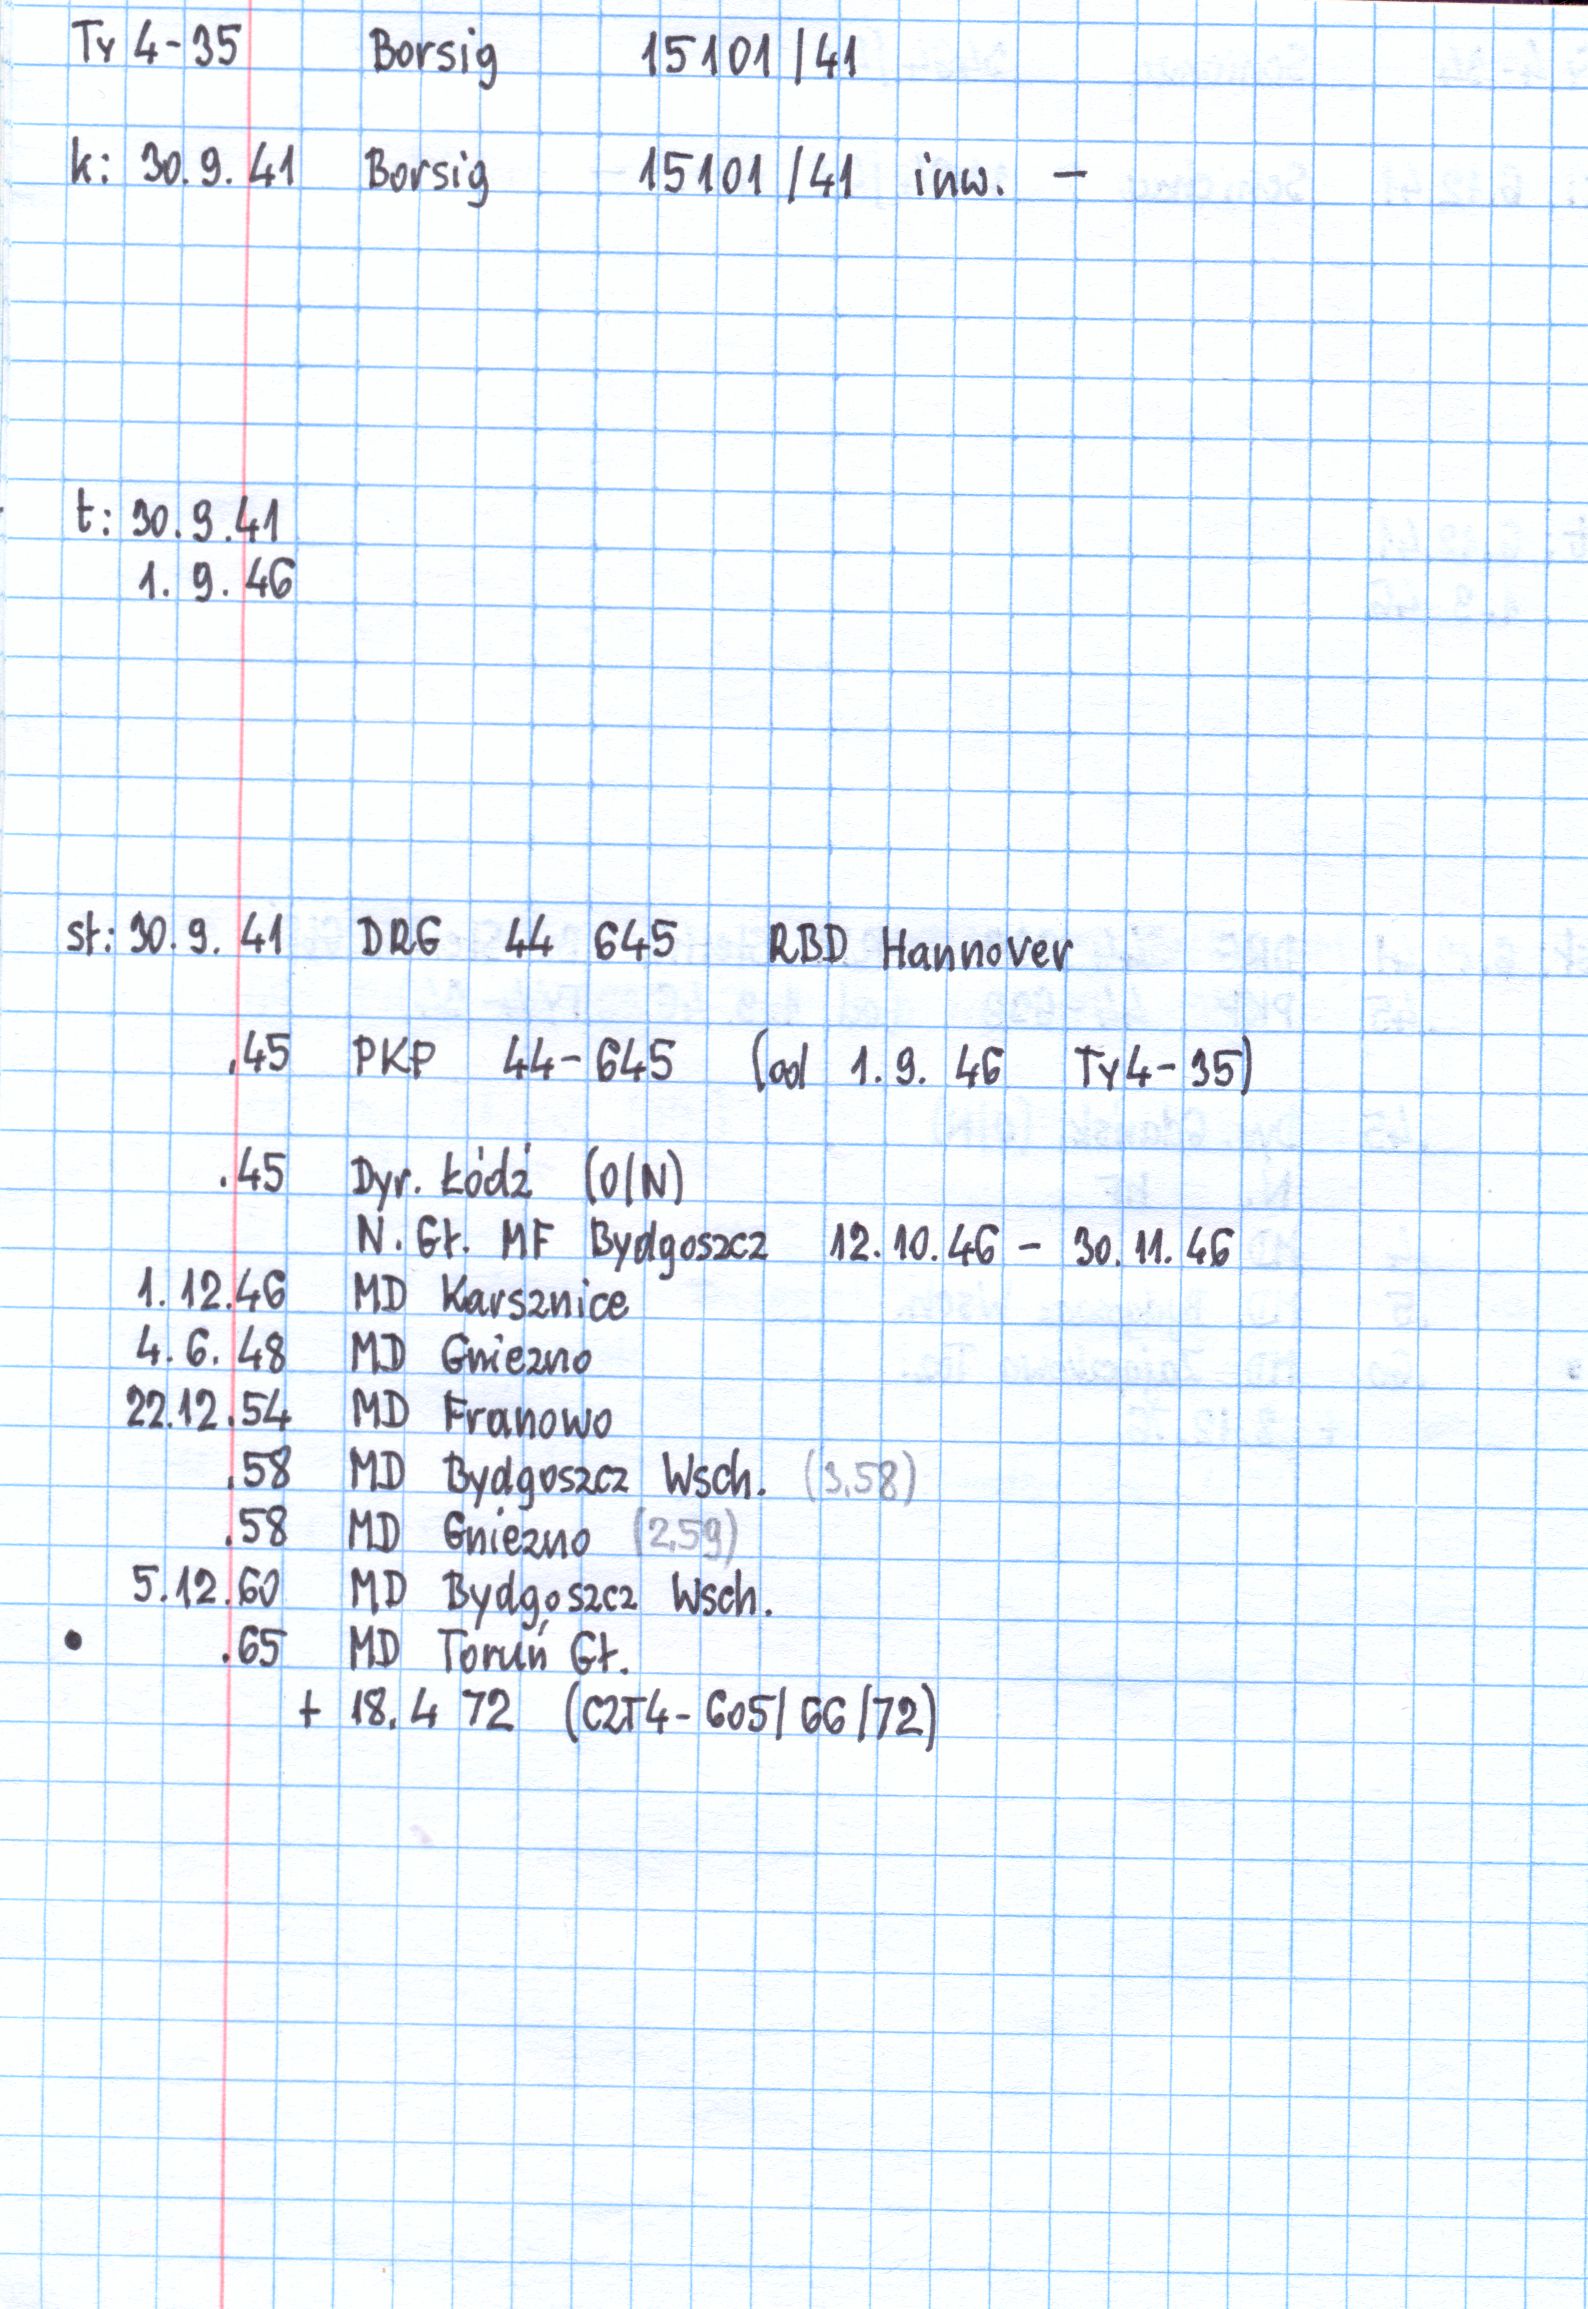 Ty 4-35 Borsig 15101/41
k: 30.9.41 Borsig 15101/41 inw. -
t: 30.9.41
1.9.46
st: 30.9.41 DRG 44 645 RBD Hannover
.45 PKP 44-645 (od 1.9.46 Ty4-35)
.45 Dyr. Łódź (O/N)
N. Gł. MF Bydgoszcz 12.10.46 - 30.11.46
1.12.46 MD Karsznice
4.6.48 MD Gniezno
22.12.54 MD Franowo
.58 MD Bydgoszcz Wsch. (3.58)
.58 MD Gniezno (2.59)
5.12.60 MD Bydgoszcz Wsch.
• .65 MD Toruń Gł.
+ 18.4 72 (C2T4-605/66/72)